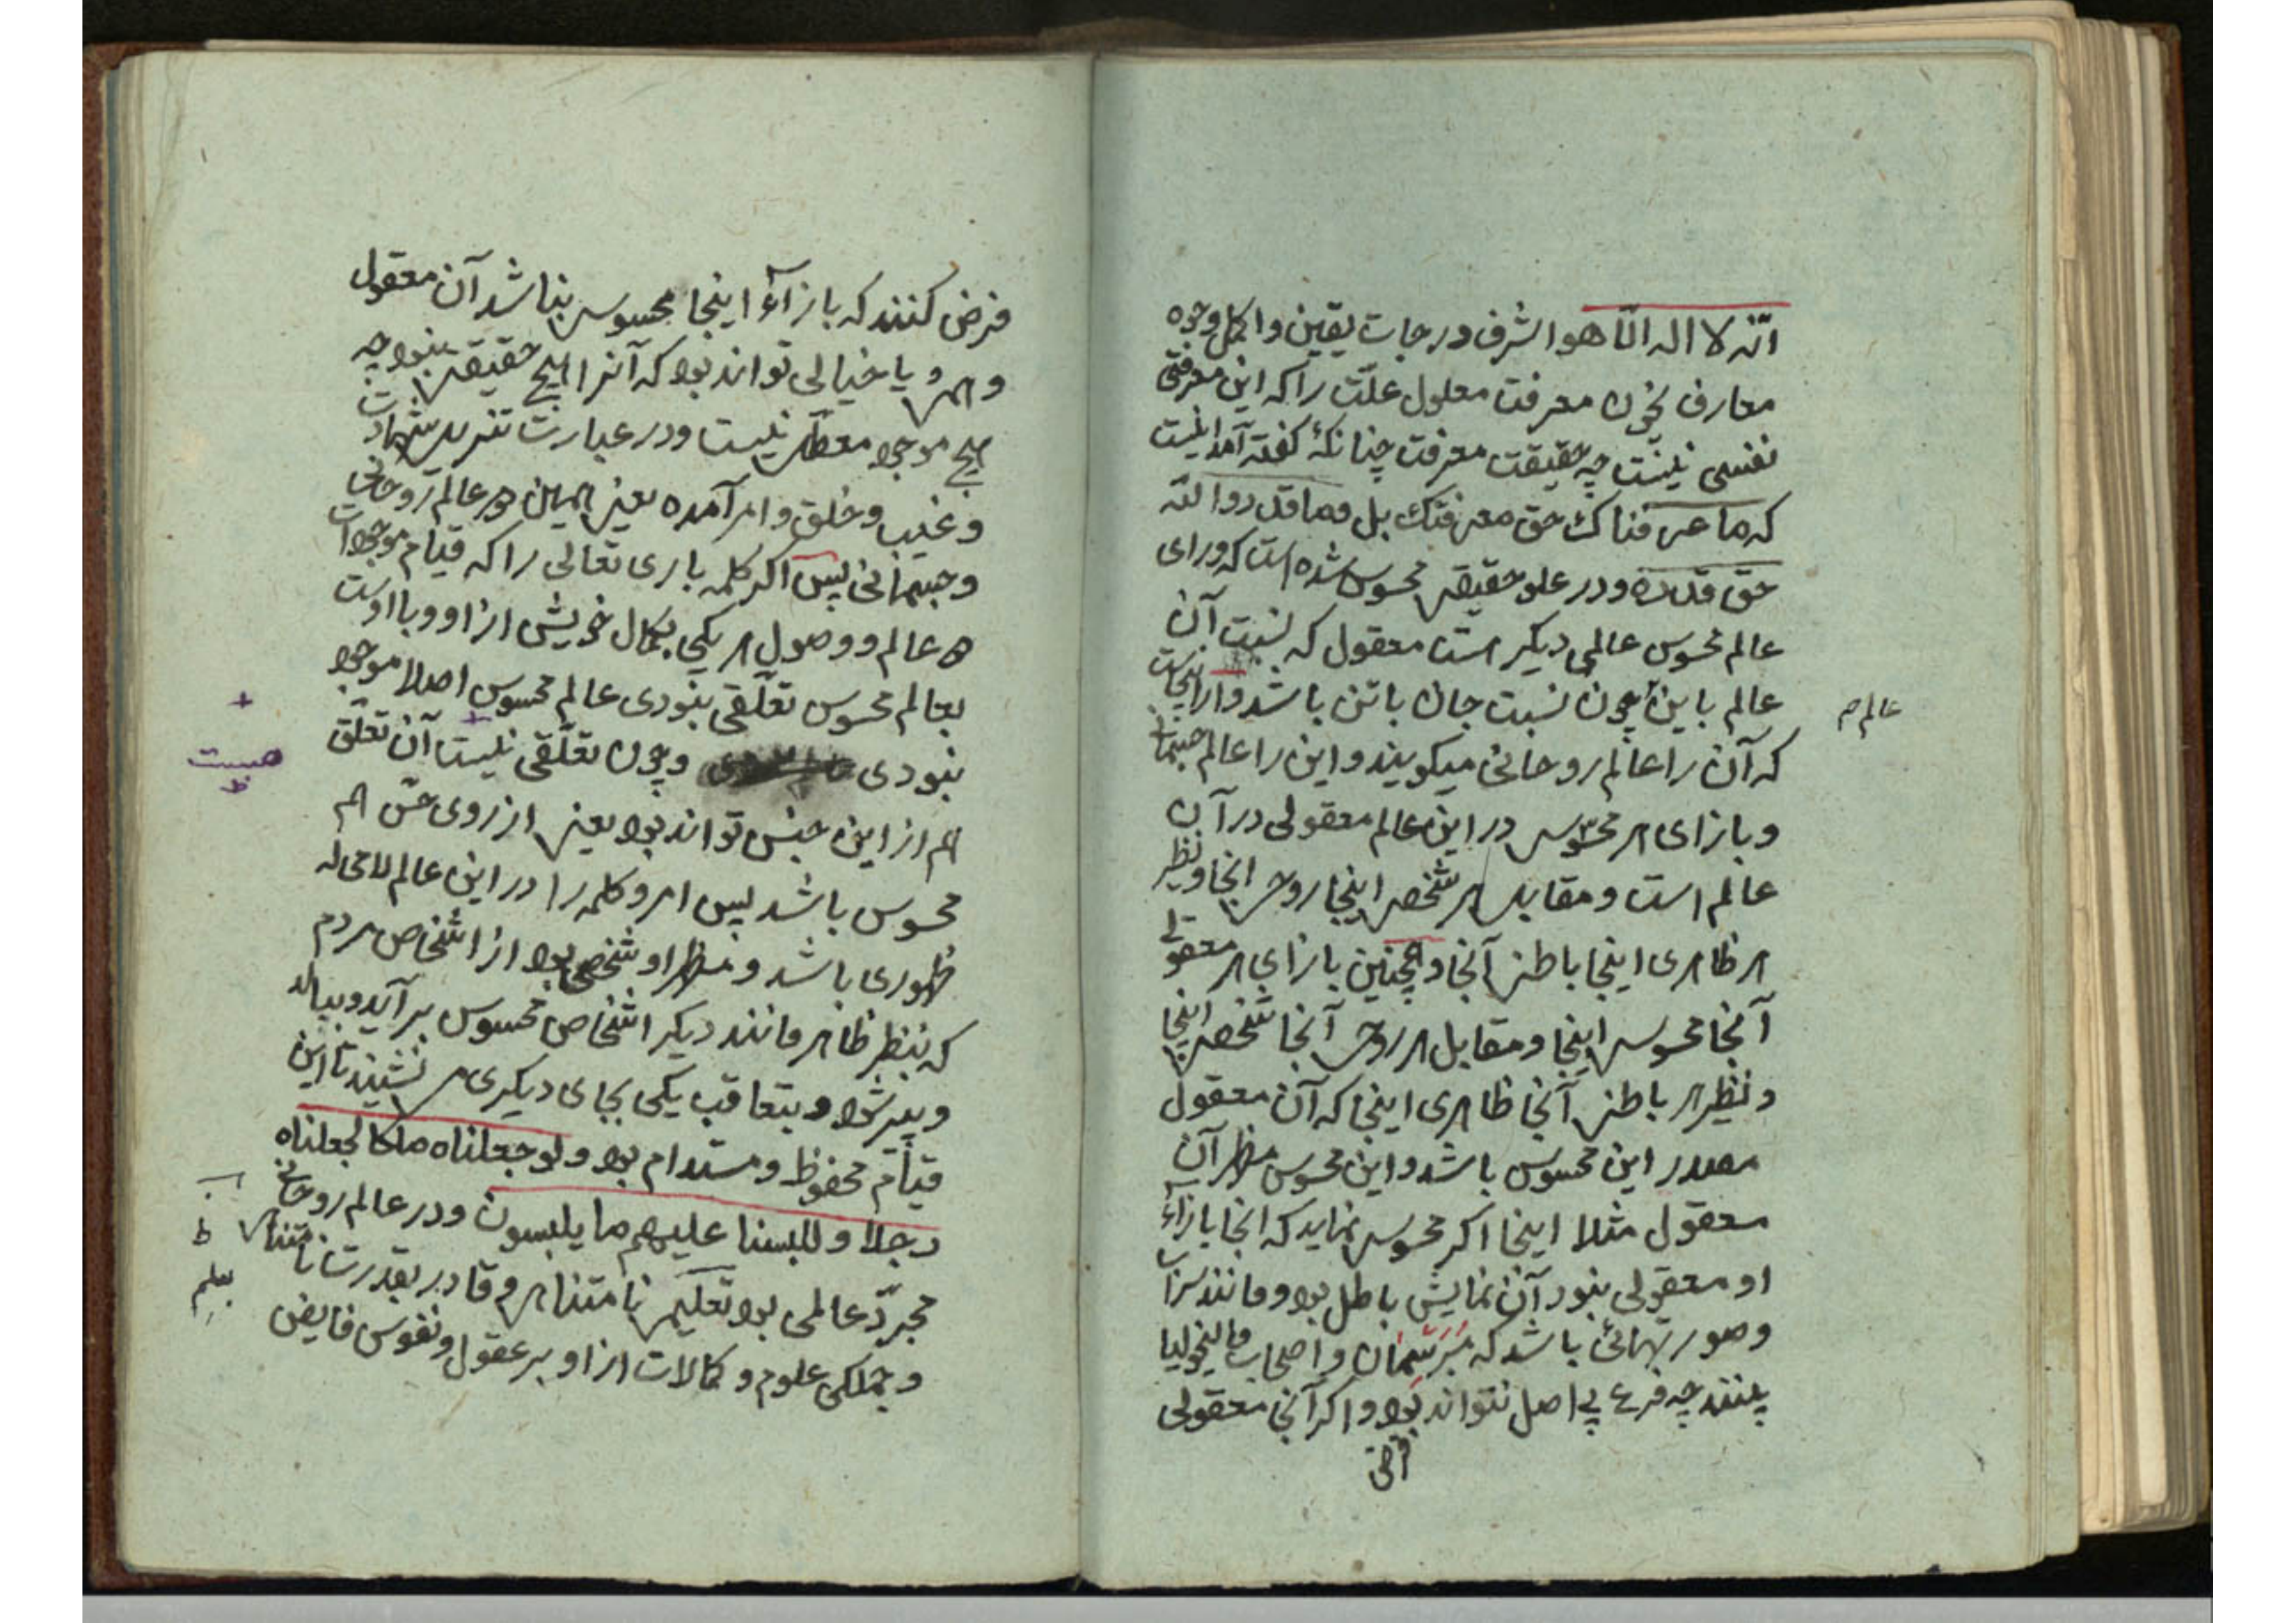 انّه لا اله الّا هو اشرف درجات یقین و اکمل وجوه
معارف نخون معرفت معلول علّت را که این معرفتی
نفسی نیست چه حقیقت معرفت چنانکه گفته آمد اینست
که ما عرفناک حق معرفتک بل و ما قدروا اللّه
حق قدره و در علو حقیقی محسوس شده است که ورای
عالم محسوس عالمی دیگر است معقول که نسبت آن
عالم باین چون نسبت جان باتن باشد و از اینجاست
عالم م
که آن را عالم روحانی میگویند و این را عالم جسمانی
و بازای هر محسوسی در این عالم معقولی در آن
عالم است و مقابل هر شخصی اینجا روحی انجا و نظیر
هر ظاهری اینجا باطنی آنجا و همچنین بازای هر معقولی
آنجا محسوسی اینجا و مقابل هر روحی آنجا شخصی اینجا
و نظیر هر باطنی آنجا ظاهری اینجا که آن معقول
مصدر این محسوس باشد و این محسوس مظهر آن
معقول مثلا اینجا اگر محسوسی نماید که انجا بازآء
او معقولی نبود آن نمایش باطل بود و مانند سراب
و صور تهمائی باشد که مبرسمان و اصحاب مالیخولیا
بینند چه فرع بی اصل نتواند بود و اگر آنجا معقولی
فرض
فرض کنند که بازآء اینجا محسوسی نباشد آن معقول
وهمی و یا خیالی تواند بود که آنرا هیچ حقیقی نبود چه
هیچ موجود معطل نیست و در عبارت تنزیل شهادت
و غیب و خلق و امر آمده یعنی همین دو عالم روحانی
و جسمانی پس اگر کلمه باری تعالی را که قیام موجودات
ه عالم و وصول هر یکی بکمال خویش از او و با اوست
بعالم محسوس تعلّقی نبودی عالم محسوس اصلا موجود
نبودی و چون تعلّقی نیست آن تعلّق
+
هست
ظ
هم از این جنس تواند بود یعنی از روی حس هم
محسوس باشد پس امر و کلمه را در این عالم لامحاله
ظهوری باشد و مظهر او شخصی بود از اشخاص مردم
که بنظر ظاهر مانند دیگر اشخاص محسوس بر آید و ببالد
و پیر شود و بتعاقب یکی بجای دیگری می نشیند تا این
قیام محفوظ و مستدام بود و لو جعلناه ملکا لجعلناه
رجلا و للبسنا علیهم ما یلبسون و در عالم روحانی
مجرّد عالمی بود تعلیمی نامتناهی و قادر بقدرت نامتناهی
ظ
بعلم
و جملگی علوم و کمالات از او بر عقول و نفوس فایض